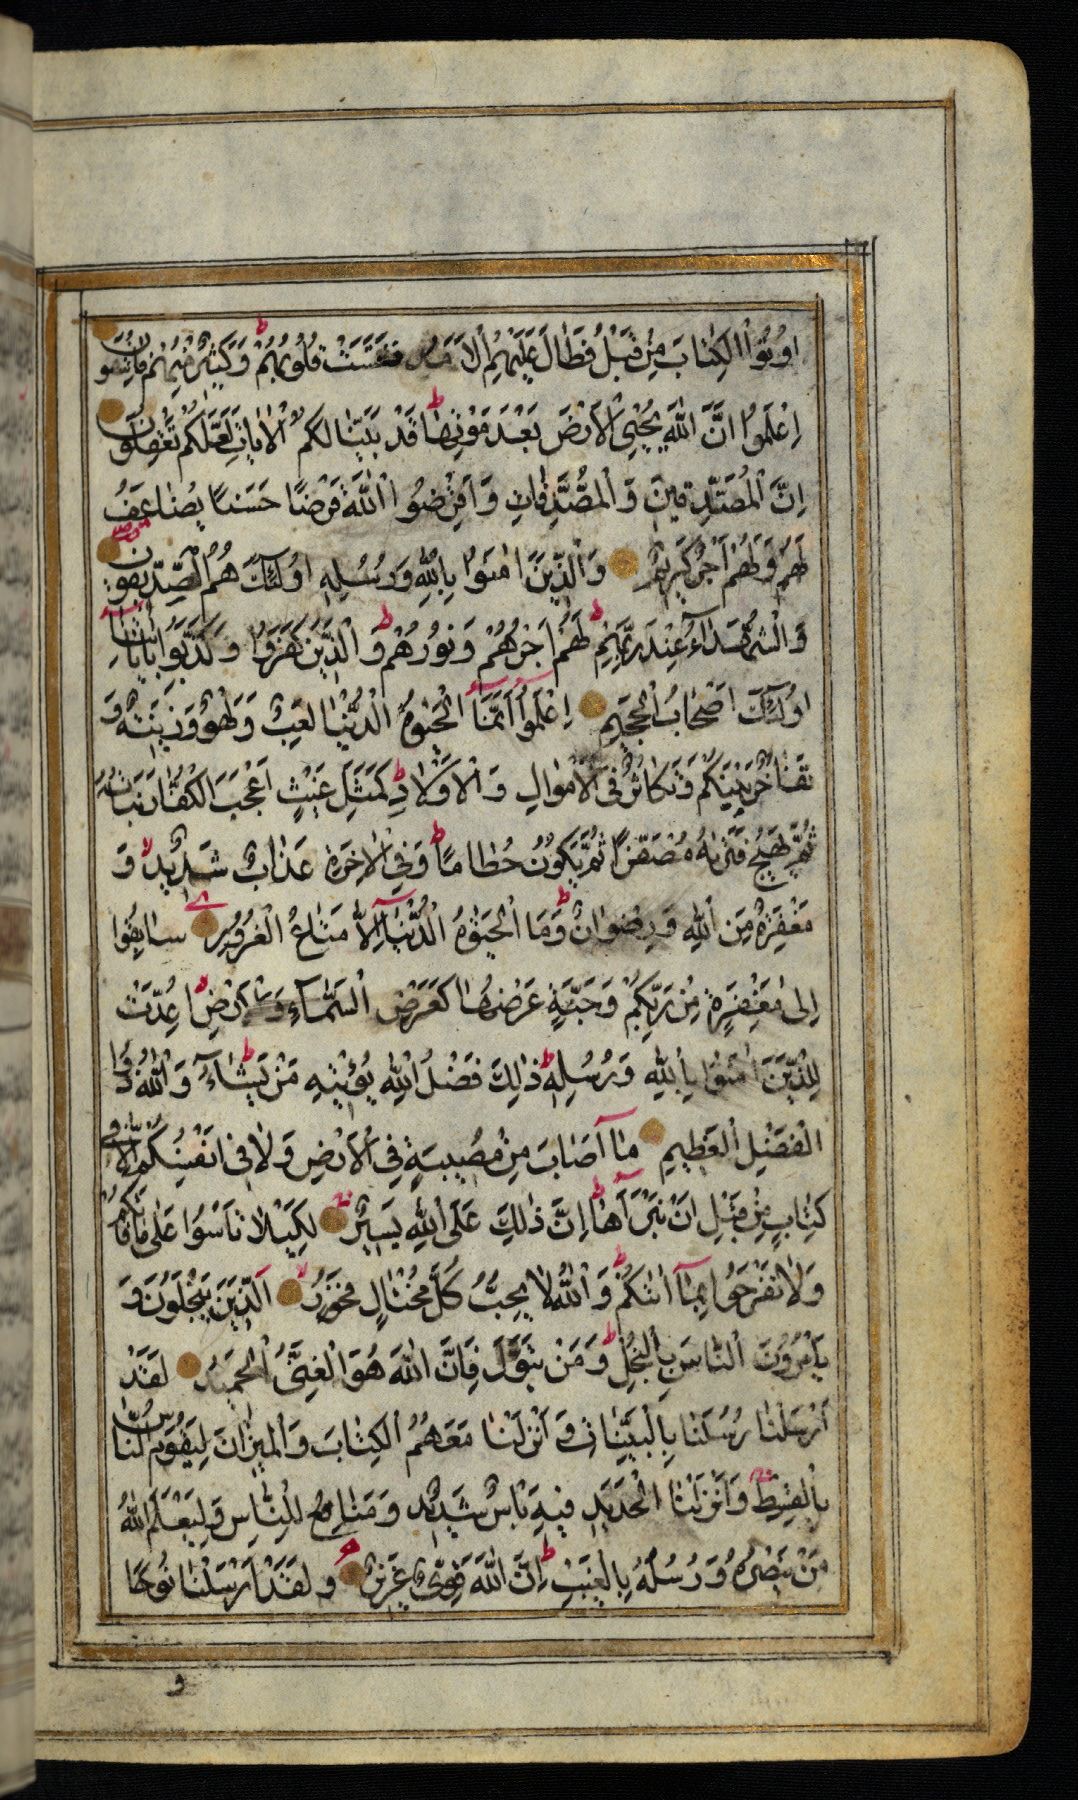 اُوتُوا الْكِتَابَ مِنْ قَبْلُ فَطَالَ عَلَيْهِمُ الْاَمَدُ فَقَسَتْ قُلُوبُهُمْ ط وَكَثِيرٌ مِنْهُمْ فَاسِقُونَ
اِعْلَمُوا اَنَّ اللّٰهَ يُحْيِي الْاَرْضَ بَعْدَ مَوْتِهَا ط قَدْ بَيَّنَّا لَكُمُ الْاٰيَاتِ لَعَلَّكُمْ تَعْقِلُونَ
اِنَّ الْمُصَّدِّقِينَ وَالْمُصَّدِّقَاتِ وَاَقْرَضُوا اللّٰهَ قَرْضًا حَسَنًا يُضَاعَفُ
لَهُمْ وَلَهُمْ اَجْرٌ كَرِيمٌ وَالَّذِينَ اٰمَنُوا بِاللّٰهِ وَرُسُلِهِ اُولٰٓئِكَ هُمُ الصِّدِّيقُونَ
وَالشُّهَدَٓاءُ عِنْدَ رَبِّهِمْ ط لَهُمْ اَجْرُهُمْ وَنُورُهُمْ ط وَالَّذِينَ كَفَرُوا وَكَذَّبُوا بِاٰيَاتِنَٓا
اُولٰٓئِكَ اَصْحَابُ الْجَحِيمِ اِعْلَمُٓوا اَنَّمَا الْحَيٰوةُ الدُّنْيَا لَعِبٌ وَلَهْوٌ وَزِينَةٌ وَ
تَفَاخُرٌ بَيْنَكُمْ وَتَكَاثُرٌ فِي الْاَمْوَالِ وَالْاَوْلَادِ ط كَمَثَلِ غَيْثٍ اَعْجَبَ الْكُفَّارَ نَبَاتُهُ
ثُمَّ يَهِيجُ فَتَرٰيهُ مُصْفَرًّا ثُمَّ يَكُونُ حُطَامًا ط وَفِي الْاٰخِرَةِ عَذَابٌ شَدِيدٌ لا وَ
مَغْفِرَةٌ مِنَ اللّٰهِ وَرِضْوَانٌ ط وَمَا الْحَيٰوةُ الدُّنْيَٓا اِلَّا مَتَاعُ الْغُرُورِ سَابِقُٓوا
اِلٰى مَغْفِرَةٍ مِنْ رَبِّكُمْ وَجَنَّةٍ عَرْضُهَا كَعَرْضِ السَّمَٓاءِ وَالْاَرْضِ لا اُعِدَّتْ
لِلَّذِينَ اٰمَنُوا بِاللّٰهِ وَرُسُلِهِ ط ذٰلِكَ فَضْلُ اللّٰهِ يُؤْتِيهِ مَنْ يَشَٓاءُ ط وَاللّٰهُ ذُو
الْفَضْلِ الْعَظِيمِ مَٓا اَصَابَ مِنْ مُصِيبَةٍ فِي الْاَرْضِ وَلَا فِي اَنْفُسِكُمْ اِلَّا فِي
كِتَابٍ مِنْ قَبْلِ اَنْ نَبْرَاَهَا ط اِنَّ ذٰلِكَ عَلَى اللّٰهِ يَسِيرٌ لِكَيْلَا تَاْسَوْا عَلٰى مَا فَاتَكُمْ
وَلَا تَفْرَحُوا بِمَٓا اٰتٰيكُمْ ط وَاللّٰهُ لَا يُحِبُّ كُلَّ مُخْتَالٍ فَخُورٍ لا اَلَّذِينَ يَبْخَلُونَ وَ
يَاْمُرُونَ النَّاسَ بِالْبُخْلِ ط وَمَنْ يَتَوَلَّ فَاِنَّ اللّٰهَ هُوَ الْغَنِيُّ الْحَمِيدُ لَقَدْ
اَرْسَلْنَا رُسُلَنَا بِالْبَيِّنَاتِ وَاَنْزَلْنَا مَعَهُمُ الْكِتَابَ وَالْمِيزَانَ لِيَقُومَ النَّاسُ
بِالْقِسْطِ وَاَنْزَلْنَا الْحَدِيدَ فِيهِ بَاْسٌ شَدِيدٌ وَمَنَافِعُ لِلنَّاسِ وَلِيَعْلَمَ اللّٰهُ
مَنْ يَنْصُرُهُ وَرُسُلَهُ بِالْغَيْبِ ط اِنَّ اللّٰهَ قَوِيٌّ عَزِيزٌ وَلَقَدْ اَرْسَلْنَا نُوحًا
و